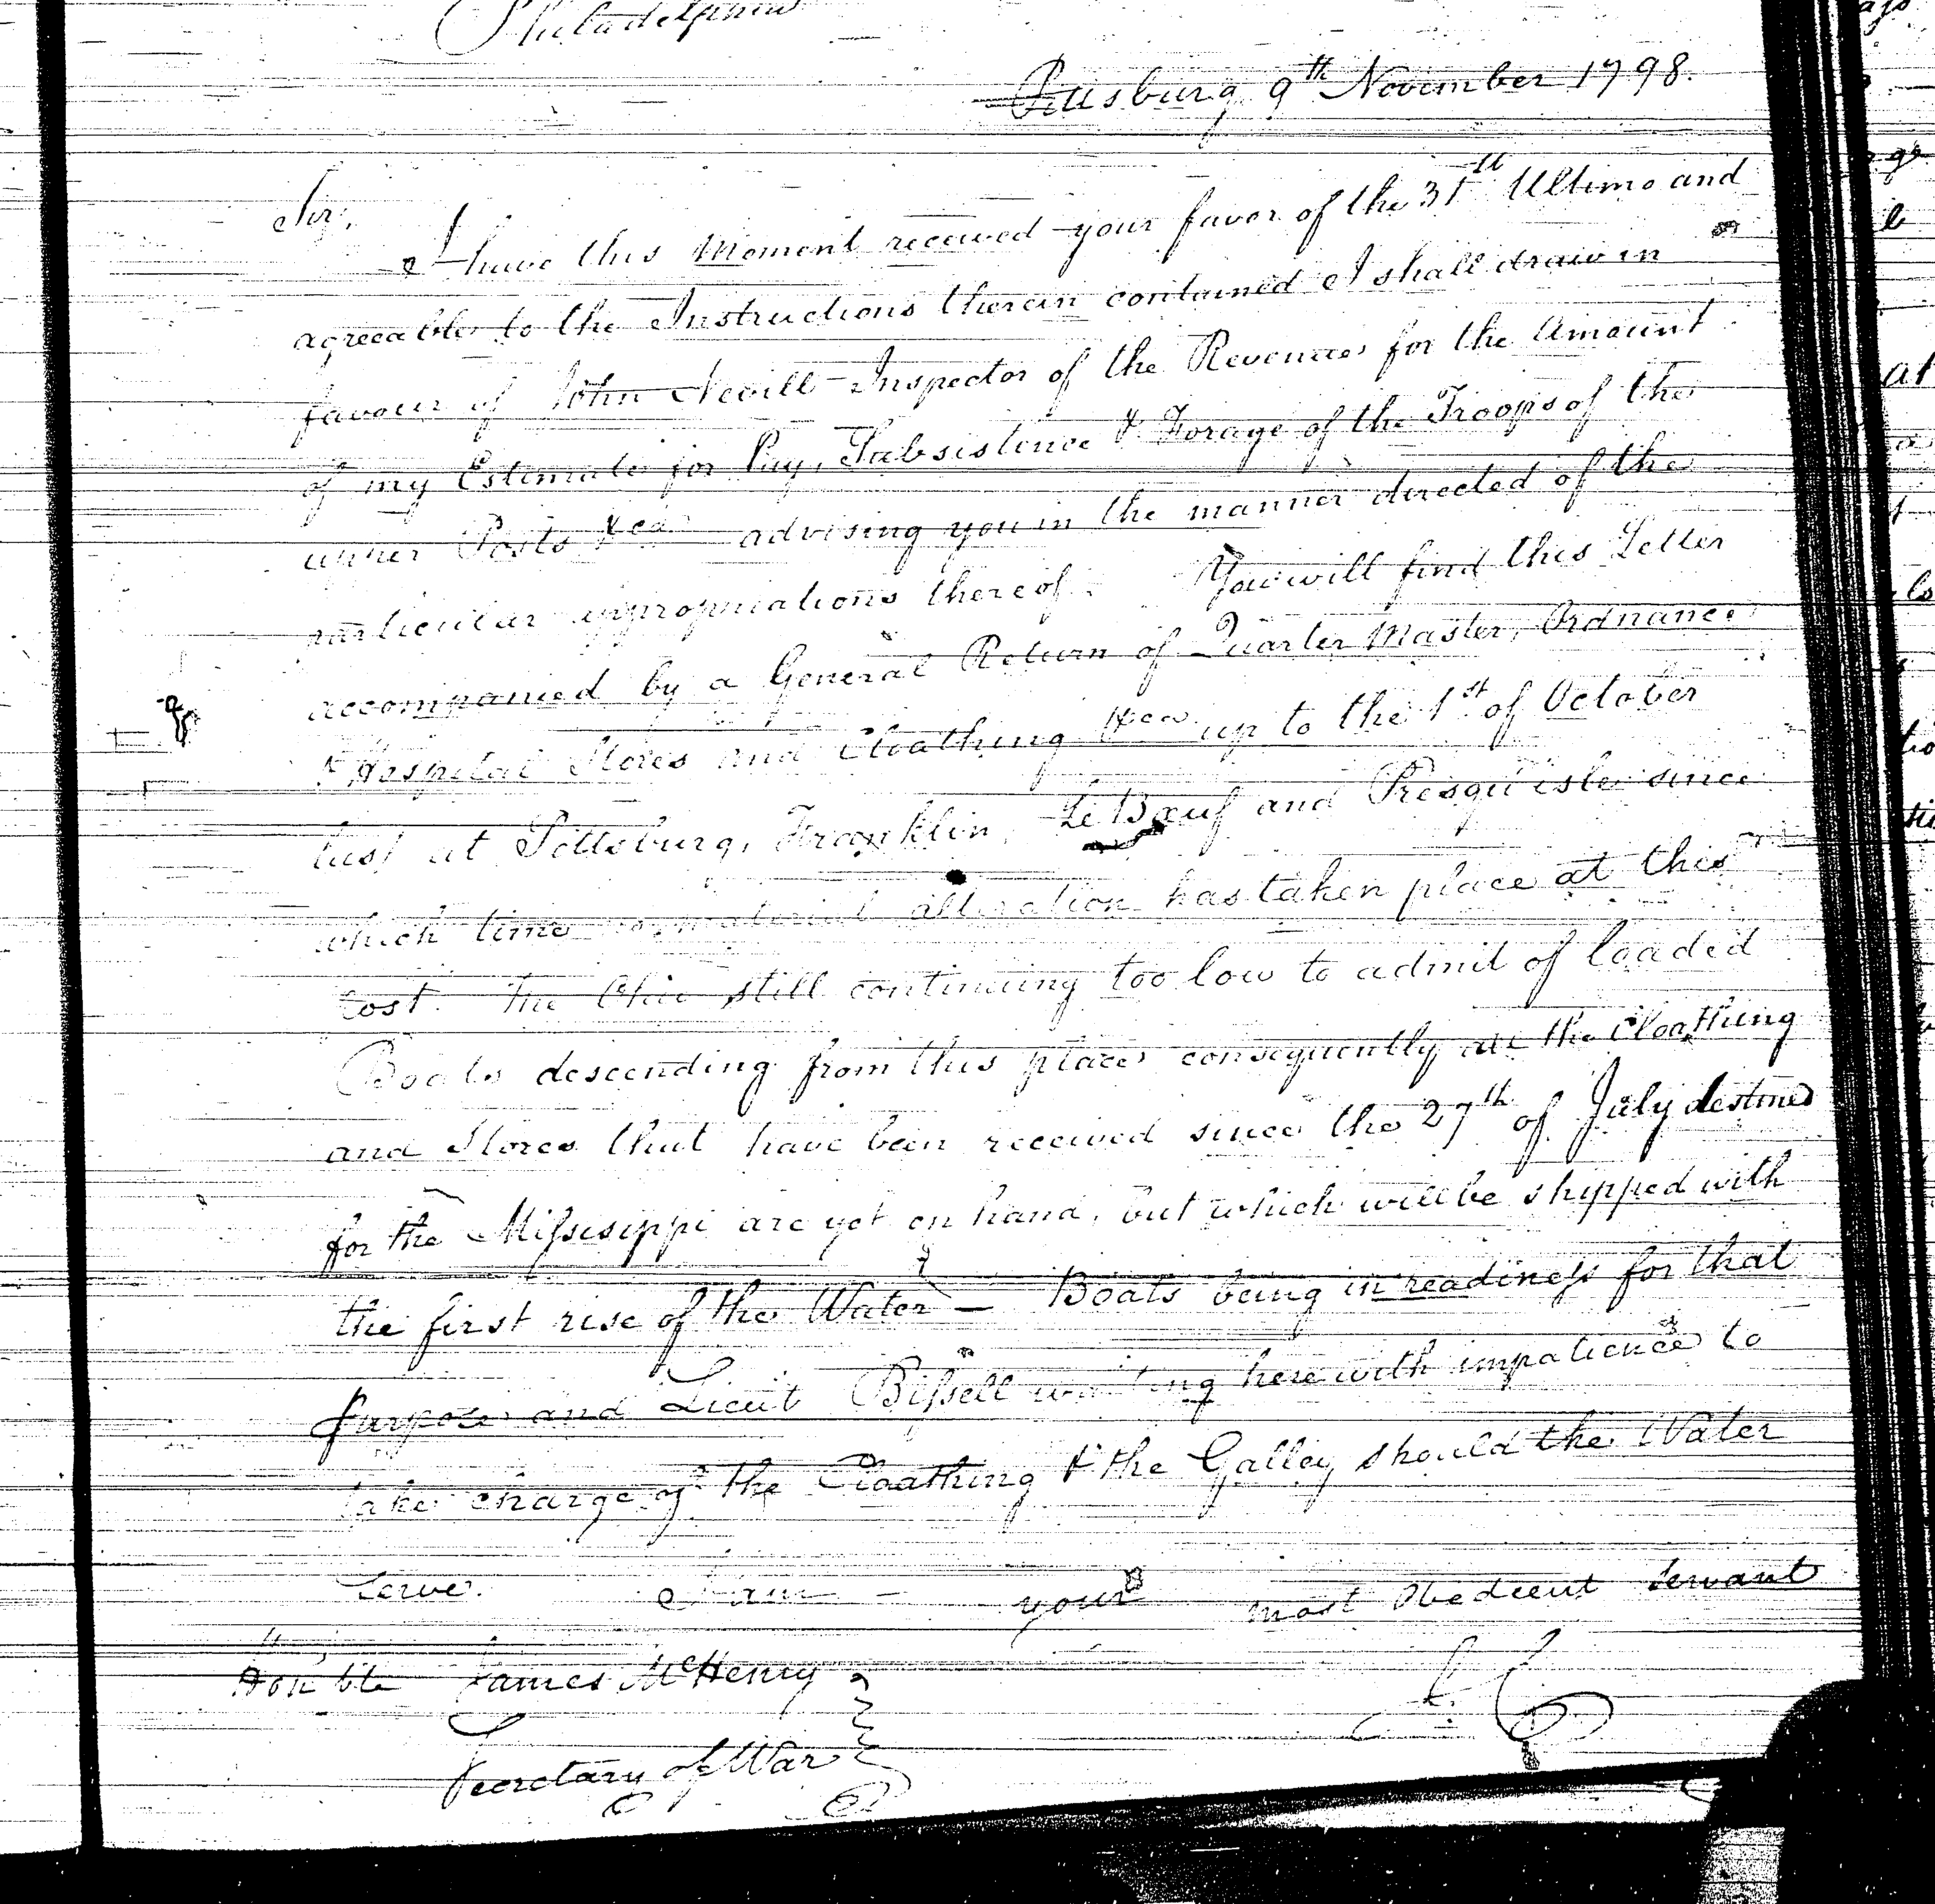 Philadelphia
Pittsburg 9th November 1798.
Sir,
I have this Moment received your favor of the 31st Ultimo and
agreeable to the Instructions therein contained I shall draw in
favour of John Nevill Inspector of the Revenue for the Amount
of my Estimate for Pay, Subsistence & Forage of the Troops of the
upper Posts &ca advising you in the manner directed of the
particular appropriations thereof. You will find this Letter
accompanied by a General Return of Quarter Master, Ordnance
& Hospital Stores and Cloathing &ca up to the 1st of October
last at Pittsburg, Franklin, Le Bœuf and Presqu'isle since
which time no material alteration has taken place at this
Post. The Ohio still continuing too low to admit of loaded
Boats descending from this place consequently all the Cloathing
and Stores that have been received since the 27th of July destined
for the Missisippi are yet on hand, but which will be shipped with
the first rise of the Water — Boats being in readiness for that
purpose and Lieut Bissell waiting here with impatience to
take charge of the Cloathing & the Galley should the Water
Serve. I am — your most Obedient Servant
Honble James McHenry
Secretary of War